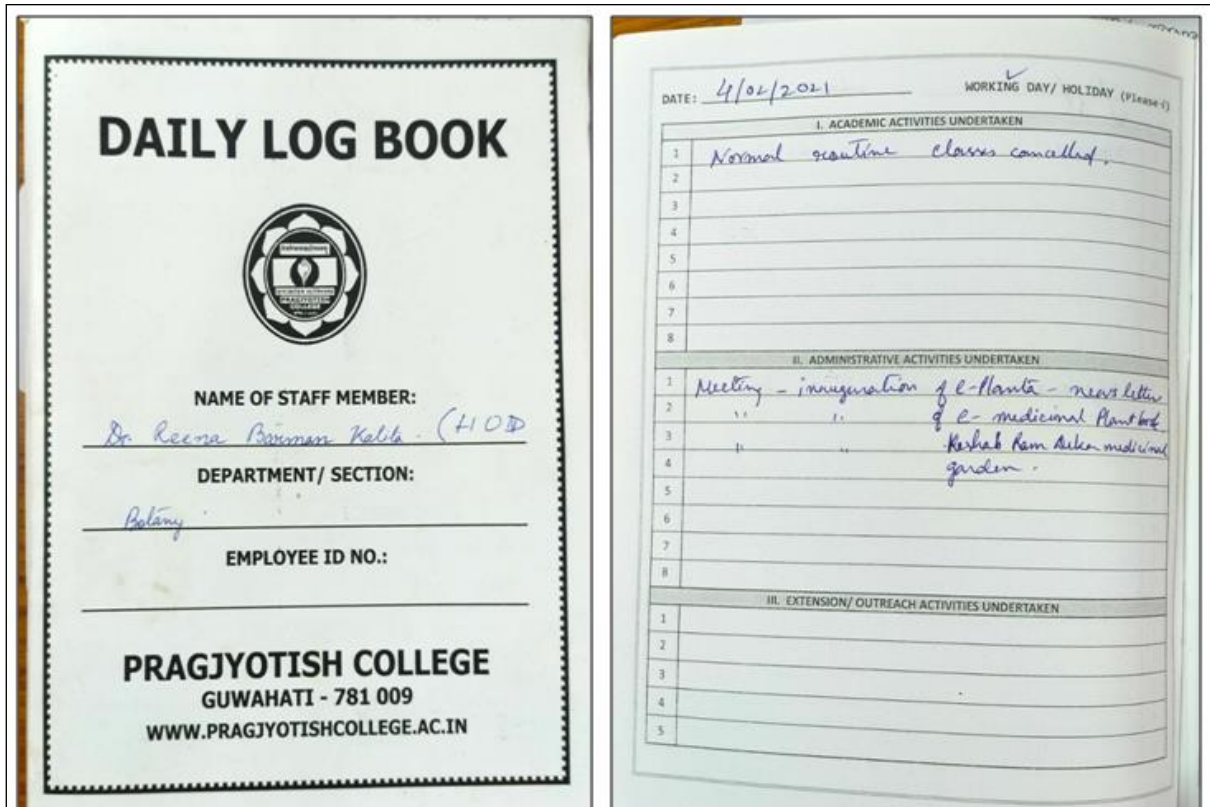 DAILY LOG BOOK
PRAGJYOTISH
COLLEGE
NAME OF STAFF MEMBER:
Dr. Reena Barman Kalita. (HOD
DEPARTMENT/ SECTION:
Botany
EMPLOYEE ID NO.:
PRAGJYOTISH COLLEGE
GUWAHATI - 781 009
WWW.PRAGJYOTISHCOLLEGE.AC.IN
DATE: 4/02/2021 WORKING DAY/ HOLIDAY (Please
I. ACADEMIC ACTIVITIES UNDERTAKEN
1 Normal routine classes cancelled.
2
3
4
5
6
7
8
II. ADMINISTRATIVE ACTIVITIES UNDERTAKEN
1 Meeting - innuguration of e-Planta - news letter
2 " " of e- medicinal Plant book
3 " " Keshab Ram medicinal
4 garden.
5
6
7
8
III. EXTENSION/ OUTREACH ACTIVITIES UNDERTAKEN
1
2
3
4
5